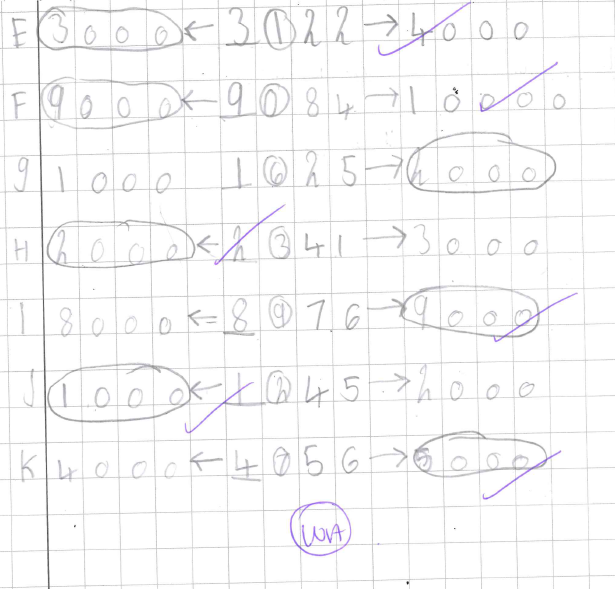 E 3000 ← 3122 → 4000
F 9000 ← 9084 → 10000
g 1000 1625 → 2000
H 2000 ← 2341 → 3000
I 8000 ⇐ 8976 → 9000
J 1000 ← 1245 → 2000
K 4000 ← 4756 → 5000